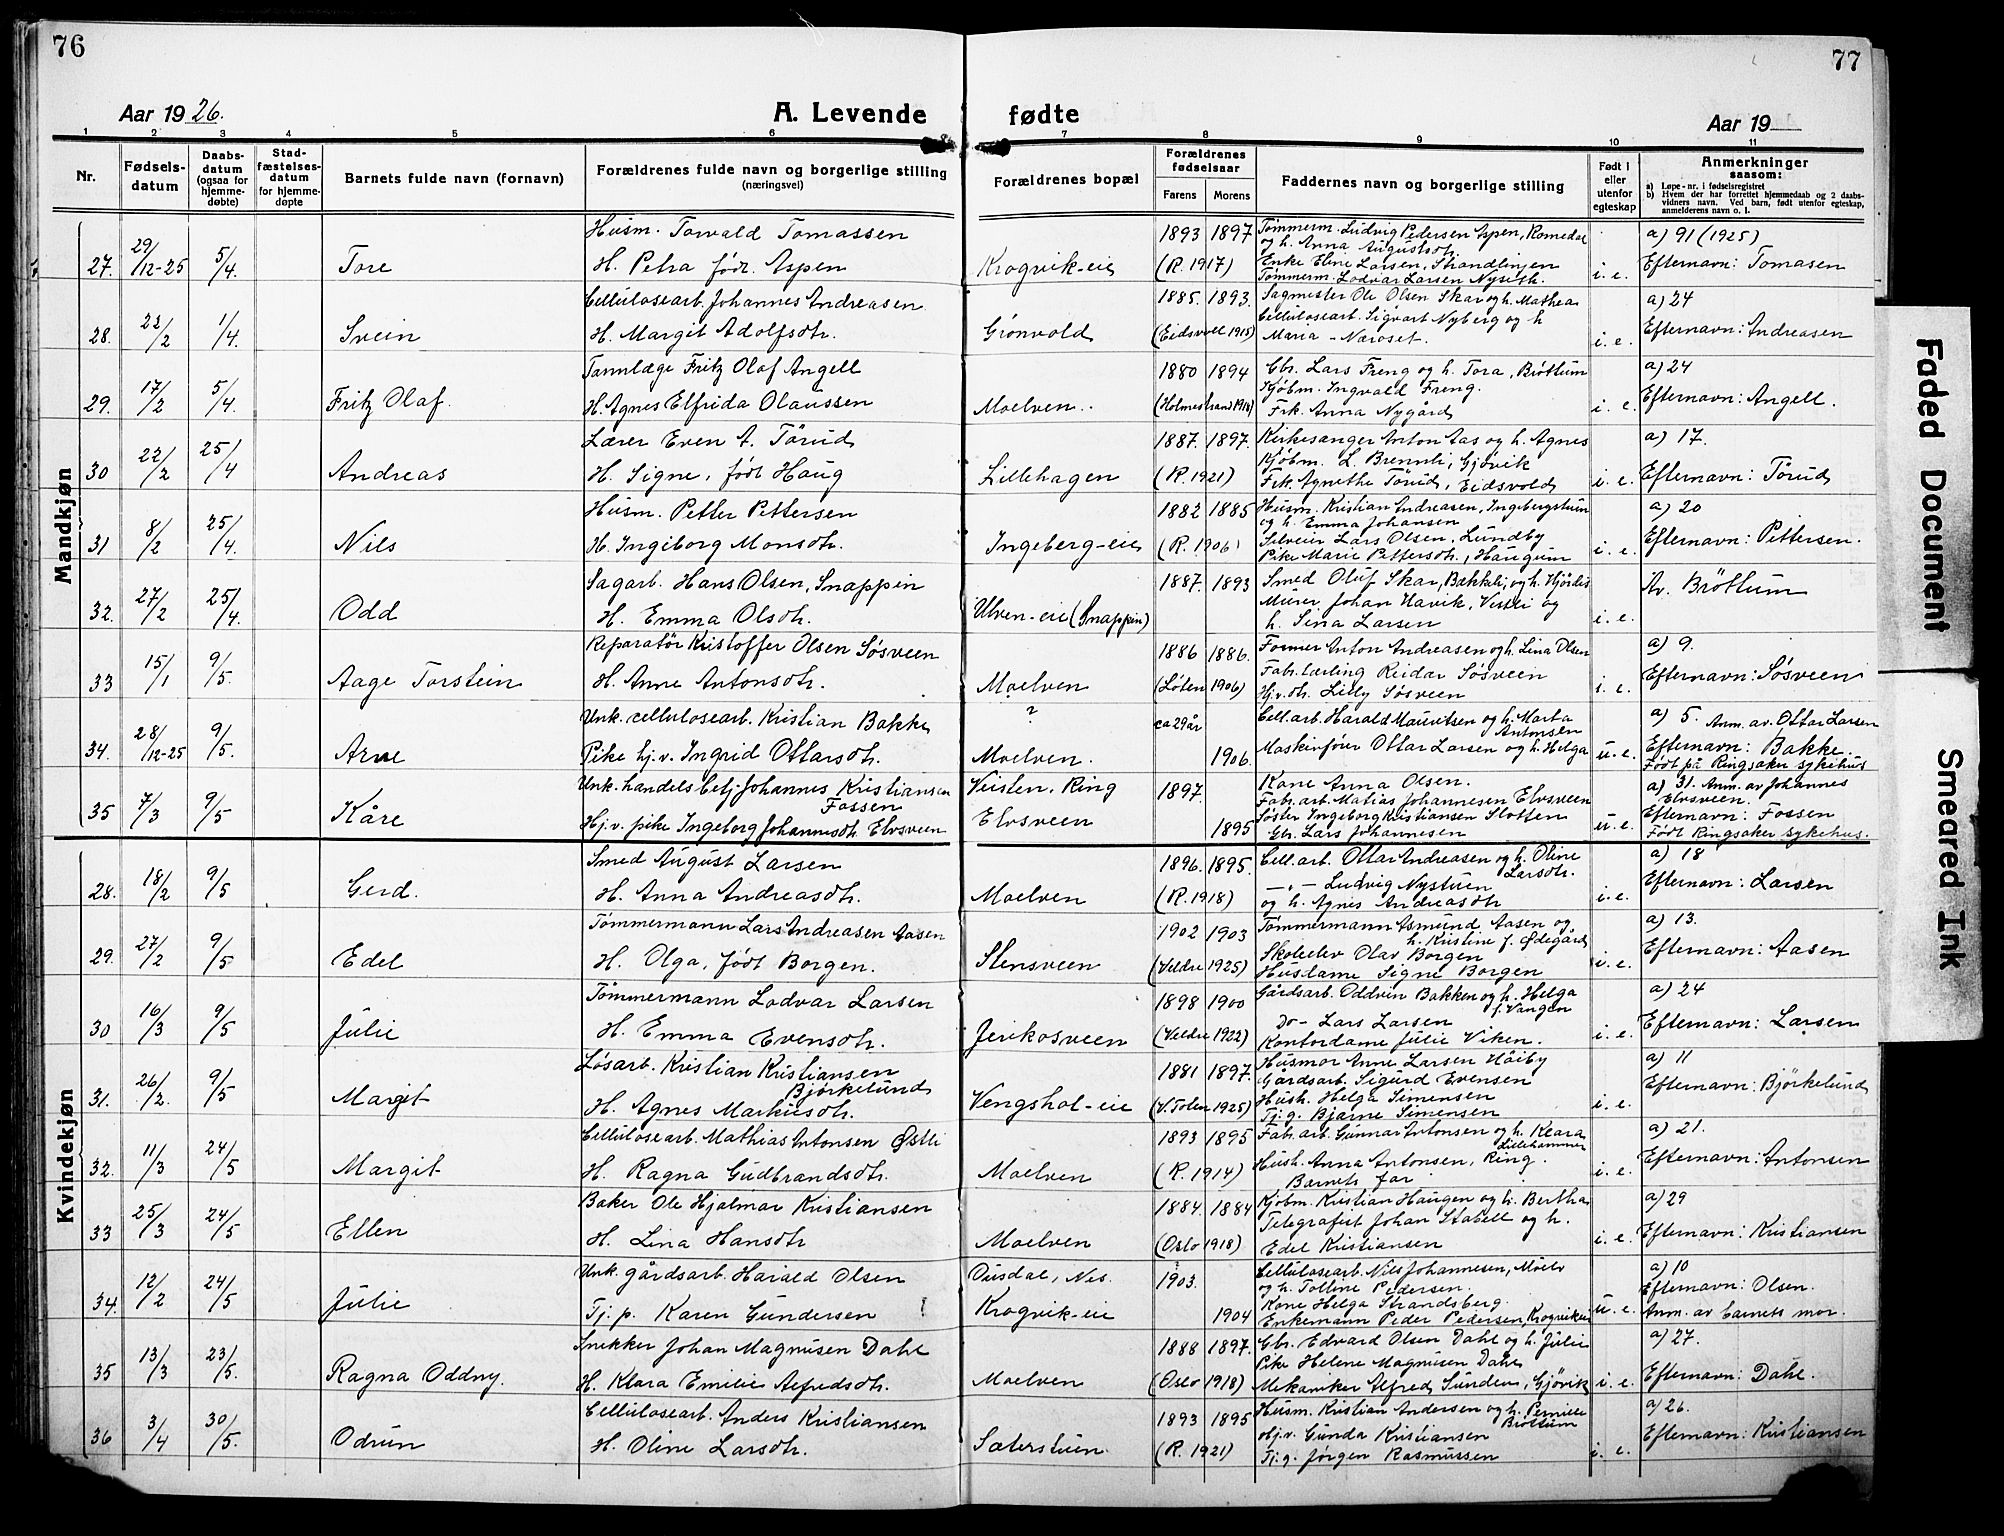 76
77
Aar 1926.
A. Levende fødte
Aar 19
1 2 3 4 5 6 7 8 9 10 11
Nr.
Fødsels-datum
Daabs-datum (ogsaa for hjemme-døbte)
Stad-fæstelses-datum for hjemme-døpte
Barnets fulde navn (fornavn)
Forældrenes fulde navn og borgerlige stilling (næringsvei)
Forældrenes bopæl
Forældrenes fødselsaar
Farens Morens
Faddernes navn og borgerlige stilling
Født i eller utenfor egteskap
Anmerkninger saasom:
a) Løpe-nr. i fødselsregistret
b) Hvem der har forrettet hjemmedaab og 2 daabs-vidners navn. Ved barn, født utenfor egteskap, anmelderens navn o. l.
Mandkjøn
27. 29/12-25 5/4. Tore
Husm. Torvald Tomassen
H. Petra født Aspen
Krogvik-eie
1893 1897
(R. 1917)
Tømmerm. Ludvig Pedersen Aspen, Romedal
og h. Anna Augustsdtr.
Enke Eline Larsen, Strandlinjen
Tømmerm. Lodvar Larsen Nyseth.
i. e.
a) 91 (1925)
Efternavn: Tomasen
28. 22/2 1/4. Svein
Cellulosearb. Johannes Andreasen
H. Margit Adolfsdtr.
Grønvold
1885. 1893.
(Eidsvoll 1915)
Sagmester Ole Olsen Skar og h. Mathea
Cellulosearb. Sigvart Nyberg og h
Maria - Næroset.
i. e.
a) 24
Efternavn: Andreasen
29. 17/2 5/4. Fritz Olaf.
Tannlæge Fritz Olaf Angell
H. Agnes Elfrida Olaussen
Moelven..
1880 1894
(Holmestrand 1918)
Gbr. Lars Freng og h. Tora, Brøttum
Kjøbm. Ingvald Freng.
Frk. Anna Nygård
i. e.
a) 24
Efternavn: Angell.
30 22/2 25/4 Andreas
Lærer Even A. Tørud
H. Signe, født Haug
Lillehagen
1887. 1897.
(R. 1921)
Kirkesanger Anton Aas og h. Agnes
Kjøbm. L. Brennli, Gjøvik
Frk. Agnethe Tørud, Eidsvold
i. e.
a) 17.
Efternavn: Tørud
31 8/2 25/4. Nils
Husm. Petter Pettersen
H. Ingeborg Monsdtr.
Ingeberg-eie
1882 1885
(R. 1906)
Husm. Kristian Andreasen, Ingebergstuen
og h. Emma Johansen
Selveier Lars Olsen, Lundby
Pike Marie Pettersdtr., Haugum
i. e.
a) 20
Efternavn: Pettersen.
32. 27/2 25/4. Odd
Sagarb. Hans Olsen, Snappen
H. Emma Olsdtr.
Ulven-eie (Snappen)
1887. 1893
Smed Oluf Skar, Bakkeli, og h. Hjørdis
Murer Johan Havik, Vestli og
h. Sina Larsen
i. e.
Av. Brøttum
33 15/1 9/5. Aage Torstein
Reparatør Kristoffer Olsen Søsveen
H. Anne Antonsdtr.
Moelven
1886 1886.
(Løten 1906)
Former Anton Andreasen og h. Lina Olsen
Fabr. lærling Reidar Søsveen
Hj.v. dtr. Lilly Søsveen
i. e.
a) 9.
Efternavn: Søsveen
34. 28/12-25 9/5. Arne
Unk. cellulosearb. Kristian Bakke
Pike hj.v. Ingrid Ottarsdtr.
?
Moelven.
ca 29 år
1906.
Cell.arb. Harald Mauritsen og h. Marta Antonsen
Maskinfører Ottar Larsen og h. Helga
u. e.
a) 5. Anm. av. Ottar Larsen
Efternavn: Bakke.
Født på Ringsaker sykehus
35 7/3 9/5 Kåre
Unk. handelsbetj. Johannes Kristiansen Fossen
Hj.v. pike Ingeborg Johannesdtr. Elvsveen
Veisten, Ring
Elvsveen
1897.
1895
Kone Anna Olsen.
Fabr. arb. Matias Johannesen Elvsveen
Søster Ingeborg Kristiansen Slotten
Gbr. Lars Johannesen
u. e.
a) 31. Anm. av Johannes Elvsveen.
Efternavn: Fossen
Født Ringsaker sykehus.
Kvindekjøn
28. 18/2 9/5 Gerd.
Smed August Larsen
H. Anna Andreasdtr.
Moelven
1896. 1895.
(R. 1918)
Cell. arb. Ottar Andreasen og h. Oline Larsdtr.
-„- Ludvig Nystuen
og h. Agnes Andreasdtr
i. e.
a) 18
Efternavn: Larsen
29. 27/2 9/5 Edel
Tømmermann Lars Andreasen Aasen
H. Olga, født Borgen.
Stensveen
1902 1903
(Veldre 1925)
Tømmermann Asmund Aasen og
h. Kristine f. Ødegård
Skoleelev Olav Borgen
Husdame Signe Borgen
i. e.
a) 13.
Efternavn: Aasen
30 16/3 9/5 Julie
Tømmermann Lodvar Larsen
H. Emma Evensdtr.
Jerikosveen
1898 1900
(Veldre 1922)
Gårdsarb. Oddvin Bakken og h. Helga f. Vangen
Do- Lars Larsen
Kontordame Julie Viken.
i. e.
a) 24
Efternavn: Larsen
31. 26/2. 9/5 Margit
Løsarb. Kristian Kristiansen Bjørkelund
H. Agnes Markusdtr.
Vengshol-eie
1881 1897.
(V. Toten 1925)
Husmor Anne Larsen Håiby
Gårdsarb. Sigurd Evensen
Hush. Helga Simensen
Tj.g. Bjarne Simensen
i. e.
a) 11
Efternavn: Bjørkelund
32. 11/3 24/5 Margit
Cellulosearb. Mathias Antonsen Østli
H. Ragna Gudbrandsdtr.
Moelven
1893 1895
(R. 1914)
Fabr. arb. Gunnar Antonsen og h. Klara Lillehammer
Hush. Anna Antonsen, Ring.
Barnets far
i. e.
a) 21.
Efternavn: Antonsen
33 25/3 24/5 Ellen
Baker Ole Hjalmar Kristiansen
H. Lina Hansdtr
Moelven
1884. 1884
(Oslo 1918)
Kjøbm. Kristian Haugen og h. Bertha
Telegrafist Johan Stabell og h.
Edel Kristiansen
i. e.
a) 29
Efternavn: Kristiansen
34. 12/2 24/5 Julie
Unk. gårdsarb. Harald Olsen
Tj. p. Karen Gundersen
Dusdal, Nes.
Krogvik-eie
1903.
1904
Cellulosearb. Nils Johannesen, Moelv
og h. Tolline Pedersen.
Kone Helga Strandsberg
Enkemann Peder Pedersen, Krogvikeie
u. e.
a) 10
Efternavn: Olsen.
Anm. av barnets mor.
35 13/3 23/5. Ragna Oddny.
Snekker Johan Magnusen Dahl
H. Klara Emilie Alfredsdtr.
Moelven
1888 1897.
(Oslo 1918)
Gbr. Edvard Olsen Dahl og h. Julie
Pike Helene Magnusen Dahl
Mekaniker Alfred Sunden, Gjøvik
i. e.
a) 27.
Efternavn: Dahl.
36 3/4 30/5. Odrun
Cellulosearb. Anders Kristiansen
H. Oline Larsdtr.
Sæterstuen
1893 1895
(R. 1921)
Husm. Kristian Andersen og h. Pernille Brøttum
Hj.v. Gunda Kristiansen
Tj.g. Jørgen Rasmussen
i. e.
a) 26.
Efternavn: Kristiansen
Faded Document
Smeared Ink